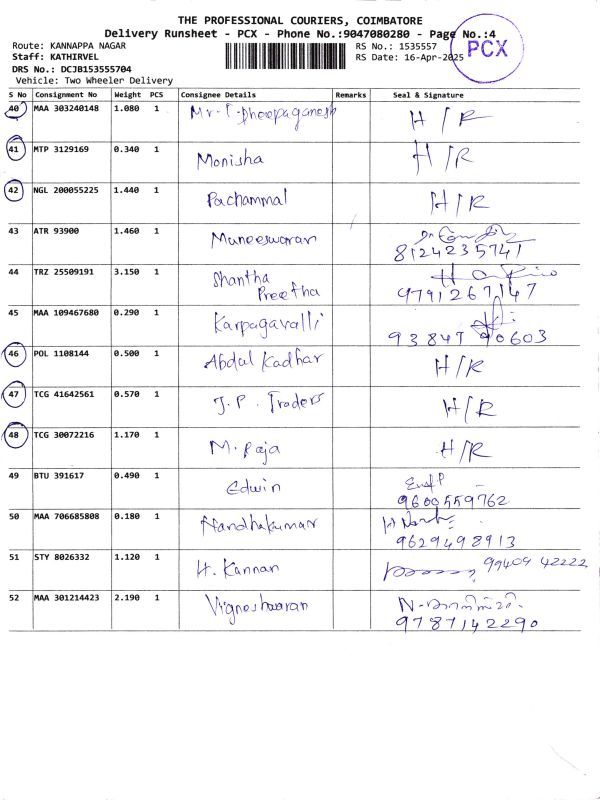 THE PROFESSIONAL COURIERS, COIMBATORE
Delivery Runsheet - PCX - Phone No.:9047080280 - Page No.:4
Route: KANNAPPA NAGAR RS No.: 1535557
Staff: KATHIRVEL RS Date: 16-Apr-2025
PCX
DRS No.: DCJB153555704
Vehicle: Two Wheeler Delivery
S No Consignment No Weight PCS Consignee Details Remarks Seal & Signature
40 MAA 303240148 1.080 1 Mr. T. Dheepaganesh H/R
41 MTP 3129169 0.340 1 Monisha H/R
42 NGL 200055225 1.440 1 Pachammal H/R
43 ATR 93900 1.460 1 Muneeswaran
8124235741
44 TRZ 25509191 3.150 1 Shantha
Preetha 9791267147
45 MAA 109467680 0.290 1 Karpagavalli
93847 90603
46 POL 1108144 0.500 1 Abdul Kadhar H/R
47 TCG 41642561 0.570 1 J.P. Traders H/R
48 TCG 30072216 1.170 1 M. Raja H/R
49 BTU 391617 0.490 1 Edwin
9600559762
50 MAA 706685808 0.180 1 Nandhakumar
9629498913
51 STY 8026332 1.120 1 H. Kannan 99409 42222
52 MAA 301214423 2.190 1 Vigneshwaran
9787142290